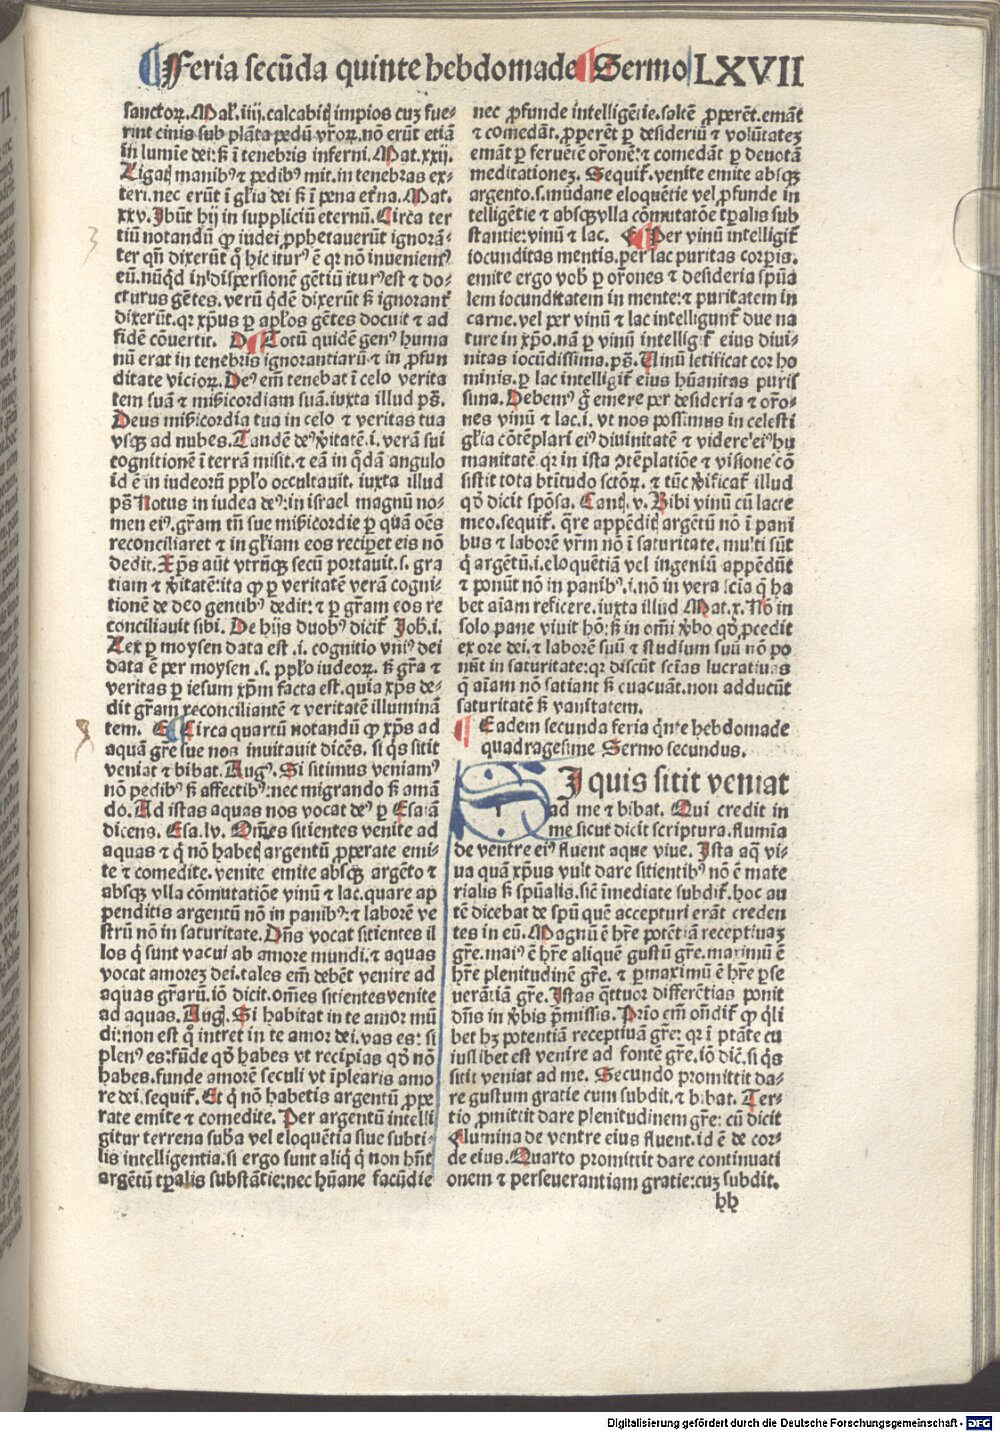 Feria secūda quinte hebdomade Sermo LXVII
sanctoꝝ. Mal'. iiij. calcabitꝭ impios cuꝫ fue⸗
rint cinis sub plāta pedū vr̄oꝝ. nō erūt etiā
in lumīe dei: s̄ ī tenebris inferni. Mat. xxij.
Ligatꝭ manibꝰ ⁊ pedibꝰ mit. in tenebras ex⸗
teri. nec erūt ī gl'ia dei s̄ ī pena et̄na. Mat.
xxv. Ibūt hij in suppliciū eternū. Circa ter
tiū notandū ꝙ iudei ꝓphetauerūt ignorā⸗
ter qn̄ dixerūt q̄ hic iturꝰ ē qꝛ nō inueniemꝰ
eū. nūqd in dispersionē gētiū iturꝰ est ⁊ do⸗
cturus gētes. verū q̄dē dixerūt s̄ ignorant̄
dixerūt. qꝛ xp̄us ꝑ apl'os gētes docuit ⁊ ad
fidē cōuertit. Totū quidē genꝰ huma
nū erat in tenebris ignorantiarū ⁊ in ꝓfun
ditate vicioꝝ. Deꝰ em̄ tenebat ī celo verita
tem suā ⁊ mīsicordiam suā. iuxta illud ps̄.
Deus mīsicordia tua in celo ⁊ veritas tua
vsqꝫ ad nubes. Tandē deꝰ v̄itatē. i. verā sui
cognitionē ī terrā misit. ⁊ eā in q̄dā angulo
id ē in iudeorū ppl'o occultauit. iuxta illud
ps̄ Notus in iudea deꝰ: in israel magnū no⸗
men eiꝰ. gr̄am tn̄ sue mīsicordie ꝑ quā oēs
reconciliaret ⁊ in gl'iam eos reciperet eis nō
dedit. Xp̄s aūt vtrūqꝫ secū portauit. s. gra
tiam ⁊ v̄itatē: ita ꝙ ꝑ veritatē verā cogni⸗
tionē de deo gentibꝰ dedit: ⁊ ꝑ gr̄am eos re
conciliauit sibi. De hijs duobꝰ dicit̄ Joh. i.
Lex ꝑ moysen data est .i. cognitio vniꝰ dei
data ē per moysen .s. ppl'o iudeoꝝ. s̄ gr̄a ⁊
veritas ꝑ iesum xp̄m facta est. quia xp̄s de⸗
dit gr̄am reconciliantē ⁊ veritatē illuminā
tem. Circa quartū notandū ꝙ xp̄s ad
aquā gr̄e sue nos inuitauit dicēs. si q̄s sitit
veniat ⁊ bibat. Augꝰ. Si sitimus veniamꝰ
nō pedibꝰ s̄ affectibꝰ: nec migrando s̄ amā
do. Ad istas aquas nos vocat deꝰ ꝑ Esaiā
dicens. Esa. lv. Om̄es sitientes venite ad
aquas ⁊ q̄ nō habetꝭ argentū ꝓperate emi⸗
te ⁊ comedite. venite emite absqꝫ argēto ⁊
absqꝫ vlla cōmutatiōe vinū ⁊ lac. quare ap
penditis argentū nō in panibꝰ: ⁊ laborē ve
strū nō in saturitate. Dn̄s vocat sitientes il
los q̄ sunt vacui ab amore mundi. ⁊ aquas
vocat amoreꝫ dei. tales em̄ debēt venire ad
aquas gr̄arū. iō dicit. om̄es sitientes venite
ad aquas. Augꝭ. Si habitat in te amor mū
di: non est q̄ intret in te amor dei. vas es: si
plenꝰ es: fūde qd̄ habes vt recipias qd̄ nō
habes. funde amorē seculi vt īplearis amo
re dei. sequit̄. Et q̄ nō habetis argentū ꝓpe
rate emite ⁊ comedite. Per argentū intelli
gitur terrena suba vel eloquētia siue subti⸗
lis intelligentia. si ergo sunt aliq̄ q̄ non hn̄t
argētū tꝑalis substātie: nec hūane facūdie
nec ꝓfunde intelligētie. saltē ꝓperēt. emāt
⁊ comedāt. ꝓperēt ꝑ desideriū ⁊ volūtateꝫ
emāt ꝑ feruētē or̄onē: ⁊ comedāt ꝑ deuotā
meditationeꝫ. Sequit̄. venite emite absqꝫ
argento. s. mūdane eloquētie vel ꝓfunde in
telligētie ⁊ absqꝫ vlla cōmutatōe tꝑalis sub
stantie: vinū ⁊ lac. Per vinū intelligit̄
iocunditas mentis. per lac puritas corꝑis.
emite ergo vob̄ ꝑ or̄ones ⁊ desideria spūa
lem iocunditatem in mente: ⁊ puritatem in
carne. vel per vinū ⁊ lac intelligunt̄ due na
ture in xp̄o. nā ꝑ vinū intelligit̄ eius diui⸗
nitas iocūdissima. ps̄. Vinū letificat cor ho
minis. ꝑ lac intelligit̄ eius hūanitas puris
sima. Debemꝰ g̊ emere per desideria ⁊ or̄o⸗
nes vinū ⁊ lac. i. vt nos possimus in celesti
gl'ia cōtēplari eiꝰ diuinitatē ⁊ videre eiꝰ hu
manitatē. qꝛ in ista ꝯtēplatiōe ⁊ visione cō
sistit tota btītudo sctōꝝ. ⁊ tūc v̄ificat̄ illud
qd̄ dicit spōsa. Cantꝭ. v. Bibi vinū cū lacte
meo. sequit̄. q̄re appēditꝭ argētū nō ī pani
bus ⁊ laborē vr̄m nō ī saturitate. multi sūt
q̄ argētū. i. eloquētiā vel ingeniū appēdūt
⁊ ponūt nō in panibꝰ. i. nō in vera scia q̄ ha
bet aīam reficere. iuxta illud Mat. x. Nō in
solo pane viuit hō: s̄ in om̄i v̄bo qd̄ ꝓcedit
ex ore dei. ⁊ laborē suū ⁊ studium suū nō po
nūt in saturitate: qꝛ discūt sctās lucratiuas
q̄ aīam nō satiant s̄ euacuāt. non adducūt
saturitatē s̄ vanitatem.
Eadem secunda feria q̄nte hebdomade
quadragesime Sermo secundus.
SI quis sitit veniat
ad me ⁊ bibat. Qui credit in
me sicut dicit scriptura. flumīa
de ventre eiꝰ fluent aque viue. Ista aq̄ vi⸗
ua quā xp̄us vult dare sitientibꝰ nō ē mate
rialis s̄ spūalis. sic̄ īmediate subdit̄. hoc au
tē dicebat de spū quē accepturi erāt creden
tes in eū. Magnū ē hr̄e potētiā receptiuaꝫ
gr̄e. maiꝰ ē hr̄e aliquē gustū gr̄e. maximū ē
hr̄e plenitudinē gr̄e. ⁊ ꝑmaximū ē hr̄e ꝑse
uerātiā gr̄e. Istas q̄ttuor differētias ponit
dn̄s in v̄bis p̄missis. Prīo em̄ on̄dit̄ ꝙ q̄li
bet hꝫ potentiā receptiuā gr̄e: qꝛ ī ptāte cu
iuslibet est venire ad fontē gr̄e. iō dic̄. si q̄s
sitit veniat ad me. Secundo promittit da⸗
re gustum gratie cum subdit. ⁊ bibat. Ter⸗
tio ꝓmittit dare plenitudinem gr̄e: cū dicit
Flumina de ventre eius fluent. id ē de cor⸗
de eius. Quarto promittit dare continuati
onem ⁊ perseuerantiam gratie: cuꝫ subdit.
hh
Digitalisierung gefördert durch die Deutsche Forschungsgemeinschaft - DFG